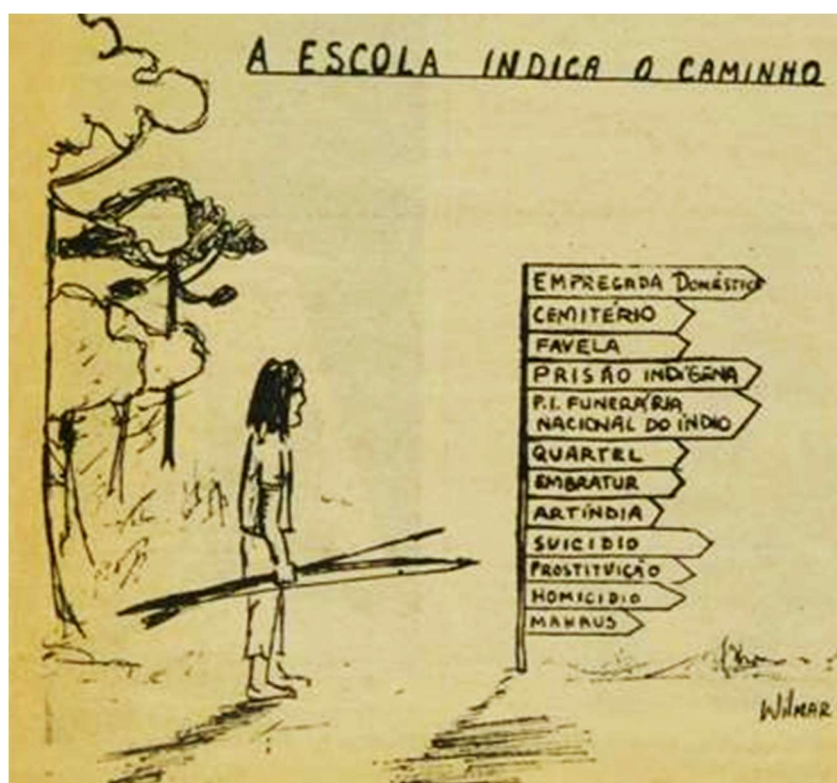 A ESCOLA INDICA O CAMINHO
EMPREGADA DOMÉSTICA
CEMITÉRIO
FAVELA
PRISÃO INDÍGENA
P.I. FUNERÁRIA
NACIONAL DO ÍNDIO
QUARTEL
EMBRATUR
ARTÍNDIA
SUICIDIO
PROSTITUIÇÃO
HOMICIDIO
MANAUS
WILMAR